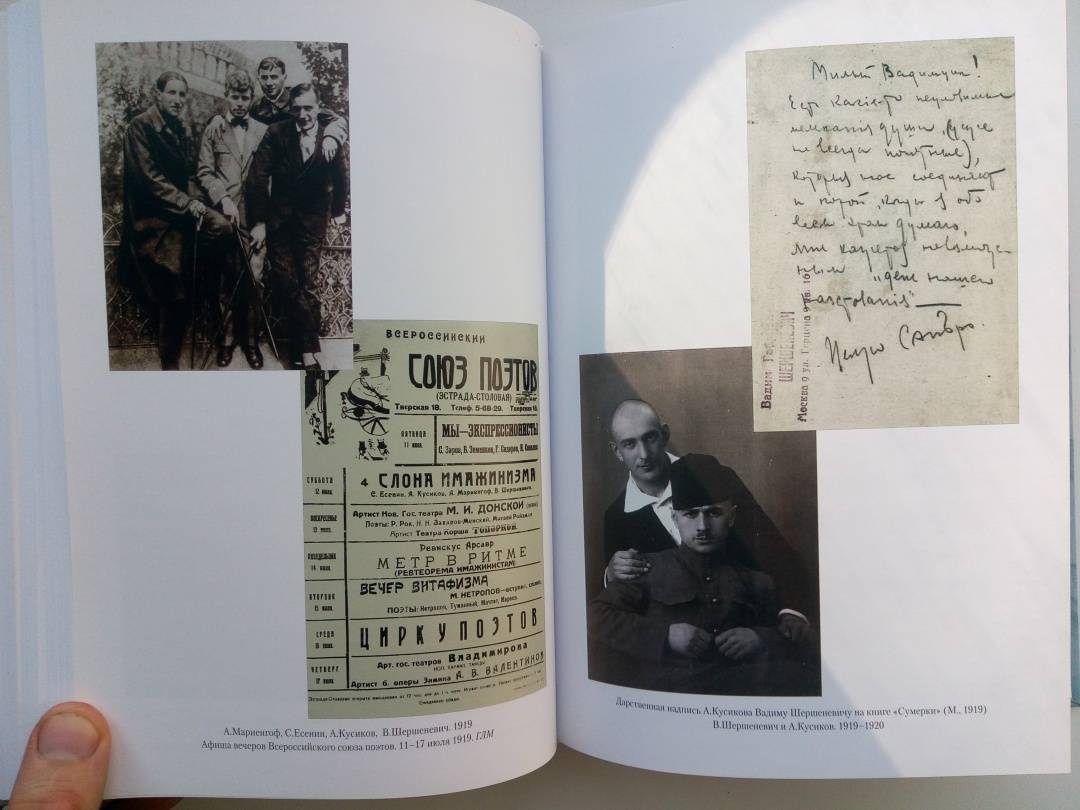 ВСЕРОССИЙСКИЙ
СОЮЗ ПОЭТОВ
(ЭСТРАДА-СТОЛОВАЯ)
Тверская 18. Телеф. 5-68-29. Тверская 18.
ПЯТНИЦА
11 июля.
МЫ—ЭКСПРЕССИОНИСТЫ
С. Заров, Б. Земенков, Г. Сидоров, И. Соколов
СУББОТА
12 июля.
4 СЛОНА ИМАЖИНИЗМА
С. Есенин, А. Кусиков, А. Мариенгоф, В. Шершеневич.
ВОСКРЕСЕНЬЕ
13 июля.
Артист Нов. Гос. театра М. И. ДОНСКОЙ
Поэты: Р. Рок, Н. Н. Захаров-Мэнский, Матвей Ройзман
Артист Театра Корша ТОПОРКОВ.
ПОНЕДЕЛЬНИК
14 июля.
Ревискус Арсавр
МЕТР В РИТМЕ
(РЕВТЕОРЕМА ИМАЖИНИСТАМ)
ВТОРНИК
15 июля.
ВЕЧЕР ВИТАФИЗМА
М. НЕТРОПОВ—вступит. слово.
ПОЭТЫ: Нетропов, Туманный,
СРЕДА
16 июля.
ЦИРК У ПОЭТОВ
ЧЕТВЕРГ
17 июля.
Арт. гос. театров Владимирова
Артист б. оперы Зимина А. В. ВАЛЕНТИНОВ
А.Мариенгоф, С.Есенин, А.Кусиков, В.Шершеневич. 1919
Афиша вечеров Всероссийского союза поэтов. 11–17 июля 1919. ГЛМ
Милый Вадимушка!
Есть какія-то неуловимыя
души, (даже
не всегда понятные),
которыя нас соединяют
и порой, когда я обо
всем этом думаю,
мне кажется
ным "день нашего
Целую Сандро.
Вадим
ШЕРШЕНЕВИЧ
Москва 9 ул. Герцена 9 кв. 10
Дарственная надпись А.Кусикова Вадиму Шершеневичу на книге «Сумерки» (М., 1919)
В.Шершеневич и А.Кусиков. 1919–1920